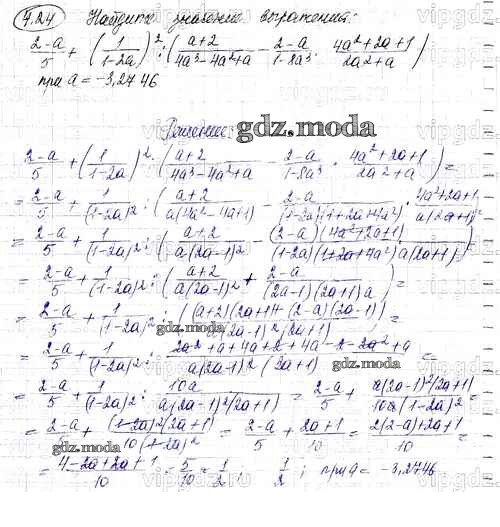 4.24 Найдите значение выражения:
(2-a)/5 + (1/(1-2a))² : ((a+2)/(4a³-4a²+a) - (2-a)/(1-8a³) · (4a²+2a+1)/(2a²+a))
при a = -3,2746
Решение:
gdz.moda
(2-a)/5 + (1/(1-2a))² : ((a+2)/(4a³-4a²+a) - (2-a)/(1-8a³) · (4a²+2a+1)/(2a²+a)) =
= (2-a)/5 + 1/(1-2a)² : ((a+2)/(a(4a²-4a+1)) - (2-a)/((1-2a)(1+2a+4a²)) · (4a²+2a+1)/(a(2a+1))) =
= (2-a)/5 + 1/(1-2a)² : ((a+2)/(a(2a-1)²) - ((2-a)(4a²+2a+1))/((1-2a)(1+2a+4a²)a(2a+1))) =
= (2-a)/5 + 1/(1-2a)² : ((a+2)/(a(2a-1)²) + (2-a)/((2a-1)(2a+1)a)) =
= (2-a)/5 + 1/(1-2a)² : (((a+2)(2a+1)+(2-a)(2a-1))/(a(2a-1)²(2a+1))) =
gdz.moda
= (2-a)/5 + 1/(1-2a)² : (2a²+a+4a+2+4a-2-2a²+a)/(a(2a-1)²(2a+1)) =
gdz.moda
= (2-a)/5 + 1/(1-2a)² : 10a/(a(2a-1)²(2a+1)) = (2-a)/5 + (a(2a-1)²(2a+1))/(10a(1-2a)²) =
= (2-a)/5 + ((1-2a)²(2a+1))/(10(1-2a)²) = (2-a)/5 + (2a+1)/10 = (2(2-a)+2a+1)/10 =
gdz.moda
= (4-2a+2a+1)/10 = 5/10 = 1/2; 1/2; при a = -3,2746